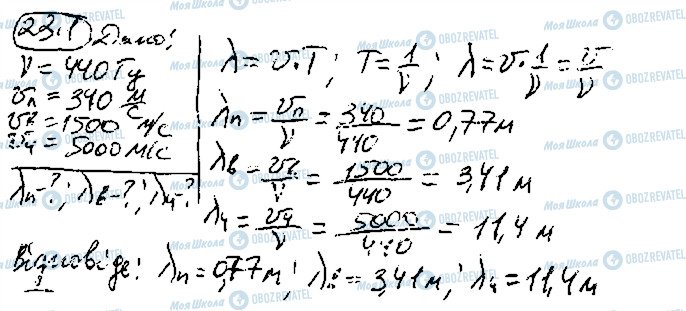 23.1 Дано:
ν = 440 Гц
υп = 340 м/с
υв = 1500 м/с
υч = 5000 м/с
λп-?; λв-?; λч-?
λ = υ·T; T = 1/ν; λ = υ·1/ν = υ/ν
λп = υп/ν = 340/440 = 0,77 м
λв = υв/ν = 1500/440 = 3,41 м
λч = υч/ν = 5000/440 = 11,4 м
Відповіде: λп = 0,77 м; λв = 3,41 м; λч = 11,4 м
Моя Школа OBOZREVATEL